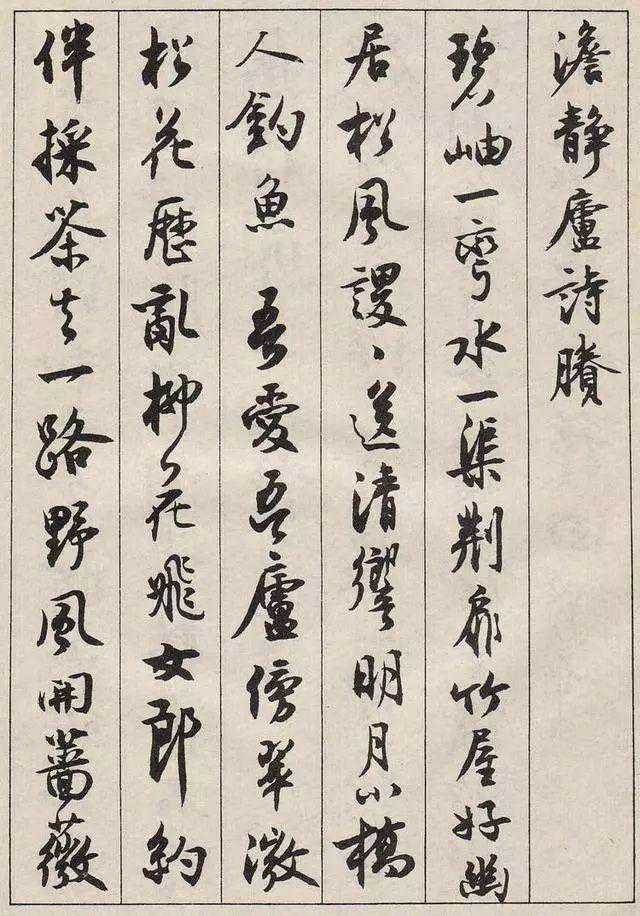 澹静廬詩賸
碧岫一彎水一渠荆扉竹屋好幽
居松風謖〻送清響明月小橋
人釣魚 吾愛吾廬傍翠微
松花歷亂柳花飛女郎約
伴採茶去一路野風開薔薇